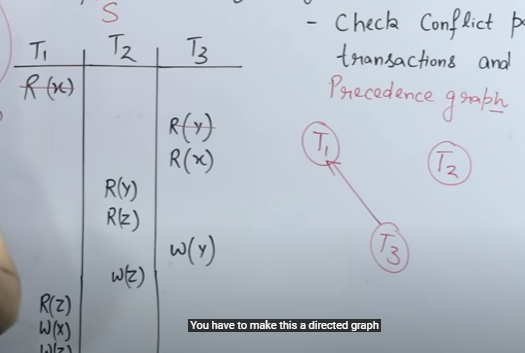 S
T1 T2 T3
R(x)
R(y)
R(x)
R(y)
R(z)
W(y)
W(z)
R(z)
W(x)
W(z)
- Check Conflict
transactions and
Precedence graph
T1
T2
T3
You have to make this a directed graph